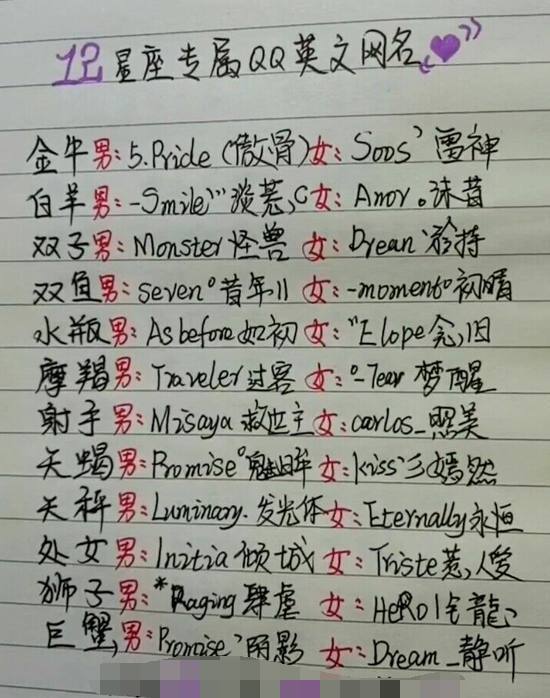 12星座专属QQ英文网名
金牛男:5.Pride(傲骨)女:Soos'雷神
白羊男:-Smile"'淡荒,C女:Anor。沫昔
双子男:Monster怪兽 女:Drean'矜持
双鱼男:seven°昔年 女:-moment°初晴
水瓶男:As before如初女:"Elope念,旧
摩羯男:Traveler过客 女:°-Tear 梦醒
射手男:Misaya救世主女:carlos_照美
天蝎男:Promise°魅眸女:kiss'彡嫣然
天秤男:Luminary.发光体女:Eternally永恒
处女男:Initia倾城 女:Triste惹,人爱
狮子男:*Raging肆虐 女:HeRo 龍
巨蟹,男:Promise'阴影 女:Dream_静听